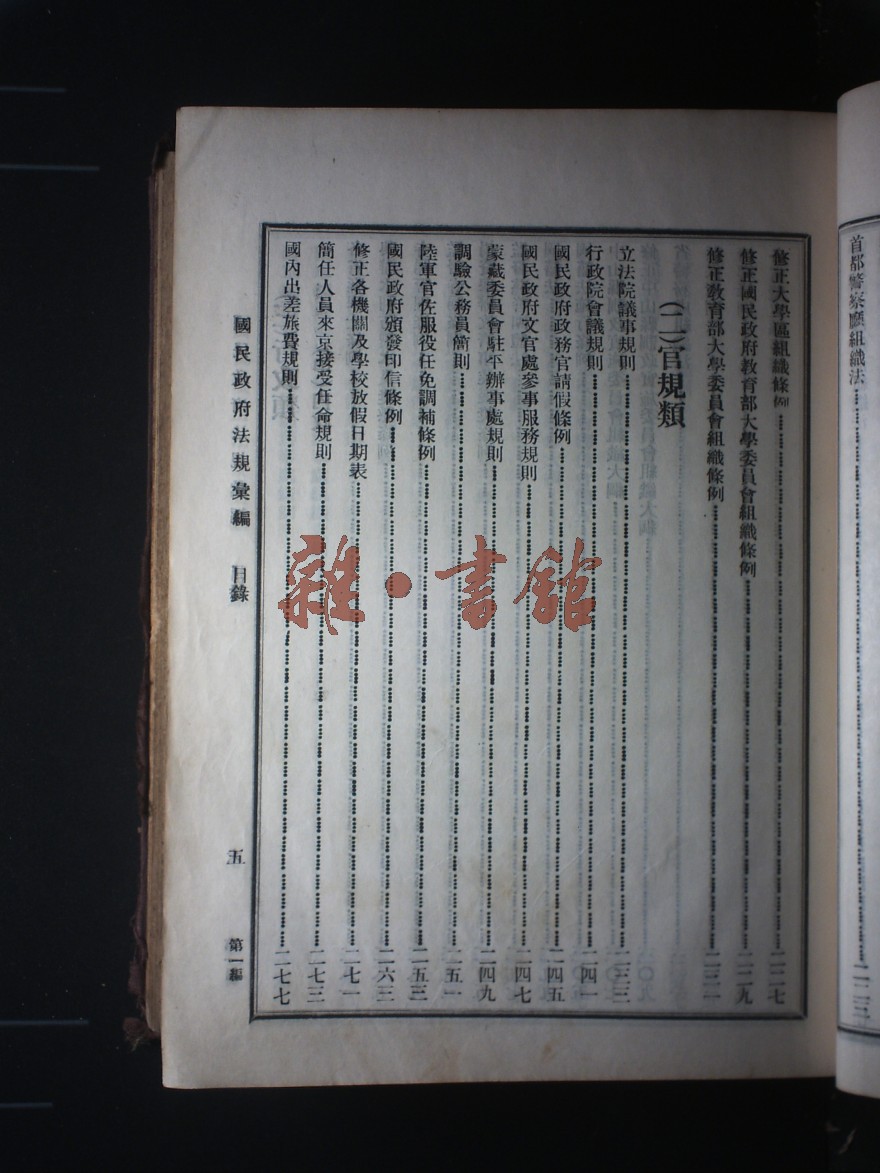 首都警察廳組織法……二二三
修正大學區組織條例……二二七
修正國民政府教育部大學委員會組織條例……二二九
修正教育部大學委員會組織條例……二三一
(二)官規類
立法院議事規則……二三三
行政院會議規則……二四一
國民政府政務官請假條例……二四五
國民政府文官處參事服務規則……二四七
蒙藏委員會駐平辦事處規則……二四九
調驗公務員簡則……二五一
陸軍官佐服役任免調補條例……二五三
國民政府頒發印信條例……二六三
修正各機關及學校放假日期表……二七一
簡任人員來京接受任命規則……二七三
國內出差旅費規則……二七七
國民政府法規彙編 目錄 五 第一編
雜·書館